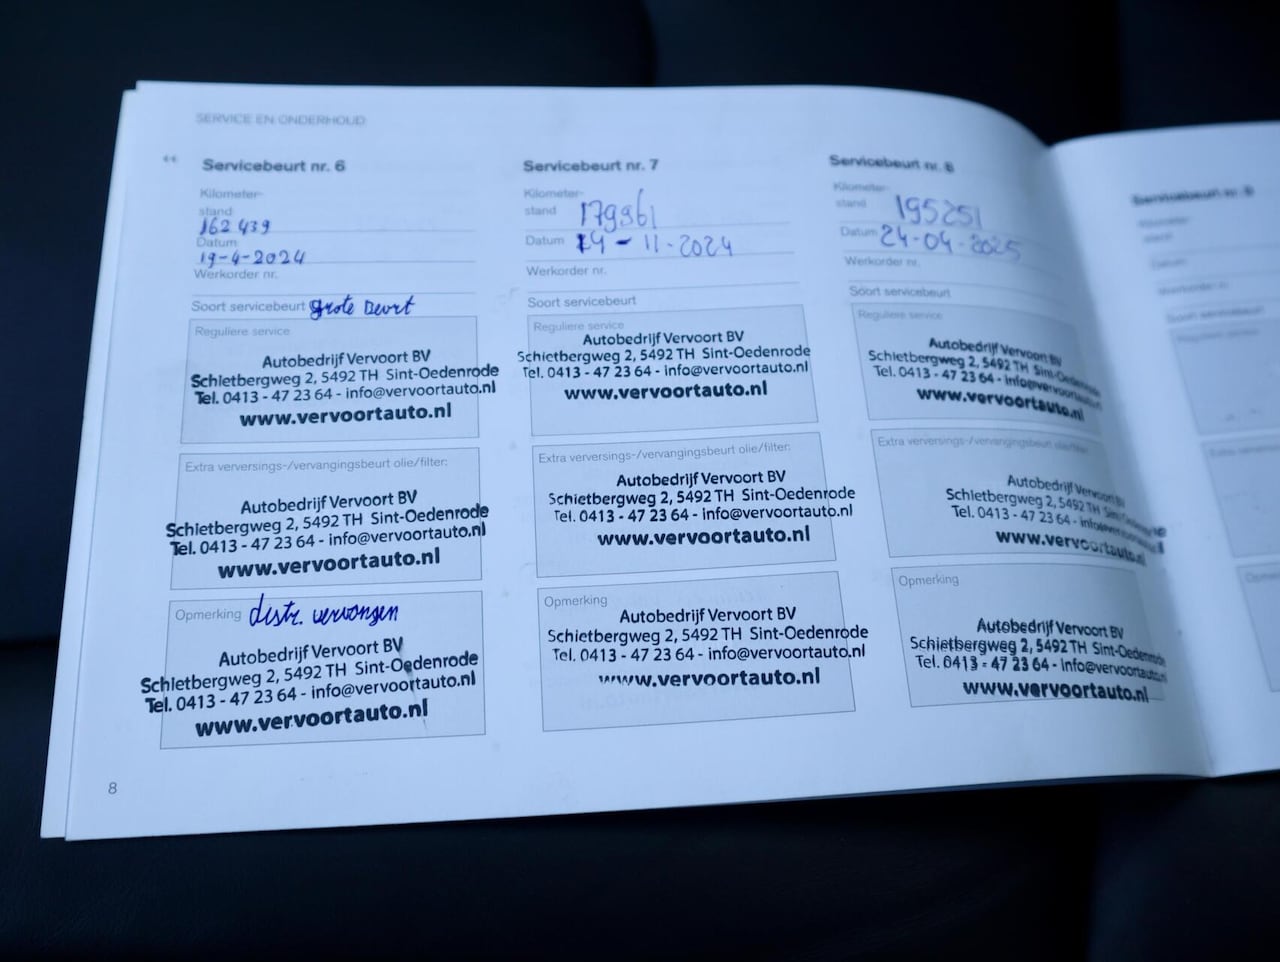 SERVICE EN ONDERHOUD
Servicebeurt nr. 6
Kilometer-
stand
162 439
Datum
19-4-2024
Werkorder nr.
Soort servicebeurt grote beurt
Reguliere service
Autobedrijf Vervoort BV
Schietbergweg 2, 5492 TH Sint-Oedenrode
Tel. 0413 - 47 23 64 - info@vervoortauto.nl
www.vervoortauto.nl
Extra verversings-/vervangingsbeurt olie/filter:
Autobedrijf Vervoort BV
Schietbergweg 2, 5492 TH Sint-Oedenrode
Tel. 0413 - 47 23 64 - info@vervoortauto.nl
www.vervoortauto.nl
Opmerking distr. vervangen
Autobedrijf Vervoort BV
Schietbergweg 2, 5492 TH Sint-Oedenrode
Tel. 0413 - 47 23 64 - info@vervoortauto.nl
www.vervoortauto.nl
Servicebeurt nr. 7
Kilometer-
stand 179961
Datum 14-11-2024
Werkorder nr.
Soort servicebeurt
Reguliere service
Autobedrijf Vervoort BV
Schietbergweg 2, 5492 TH Sint-Oedenrode
Tel. 0413 - 47 23 64 - info@vervoortauto.nl
www.vervoortauto.nl
Extra verversings-/vervangingsbeurt olie/filter:
Autobedrijf Vervoort BV
Schietbergweg 2, 5492 TH Sint-Oedenrode
Tel. 0413 - 47 23 64 - info@vervoortauto.nl
www.vervoortauto.nl
Opmerking
Autobedrijf Vervoort BV
Schietbergweg 2, 5492 TH Sint-Oedenrode
Tel. 0413 - 47 23 64 - info@vervoortauto.nl
www.vervoortauto.nl
Servicebeurt nr. 8
Kilometer-
stand 195251
Datum 24-04-2025
Werkorder nr.
Soort servicebeurt
Reguliere service
Autobedrijf Vervoort BV
Schietbergweg 2, 5492 TH Sint-Oedenrode
Tel. 0413 - 47 23 64 - info@vervoortauto.nl
www.vervoortauto.nl
Extra verversings-/vervangingsbeurt olie/filter:
Autobedrijf Vervoort BV
Schietbergweg 2, 5492 TH Sint-Oedenrode
Tel. 0413 - 47 23 64 - info@vervoortauto.nl
www.vervoortauto.nl
Opmerking
Autobedrijf Vervoort BV
Schietbergweg 2, 5492 TH Sint-Oedenrode
Tel. 0413 - 47 23 64 - info@vervoortauto.nl
www.vervoortauto.nl
8
Servicebeurt nr. 9